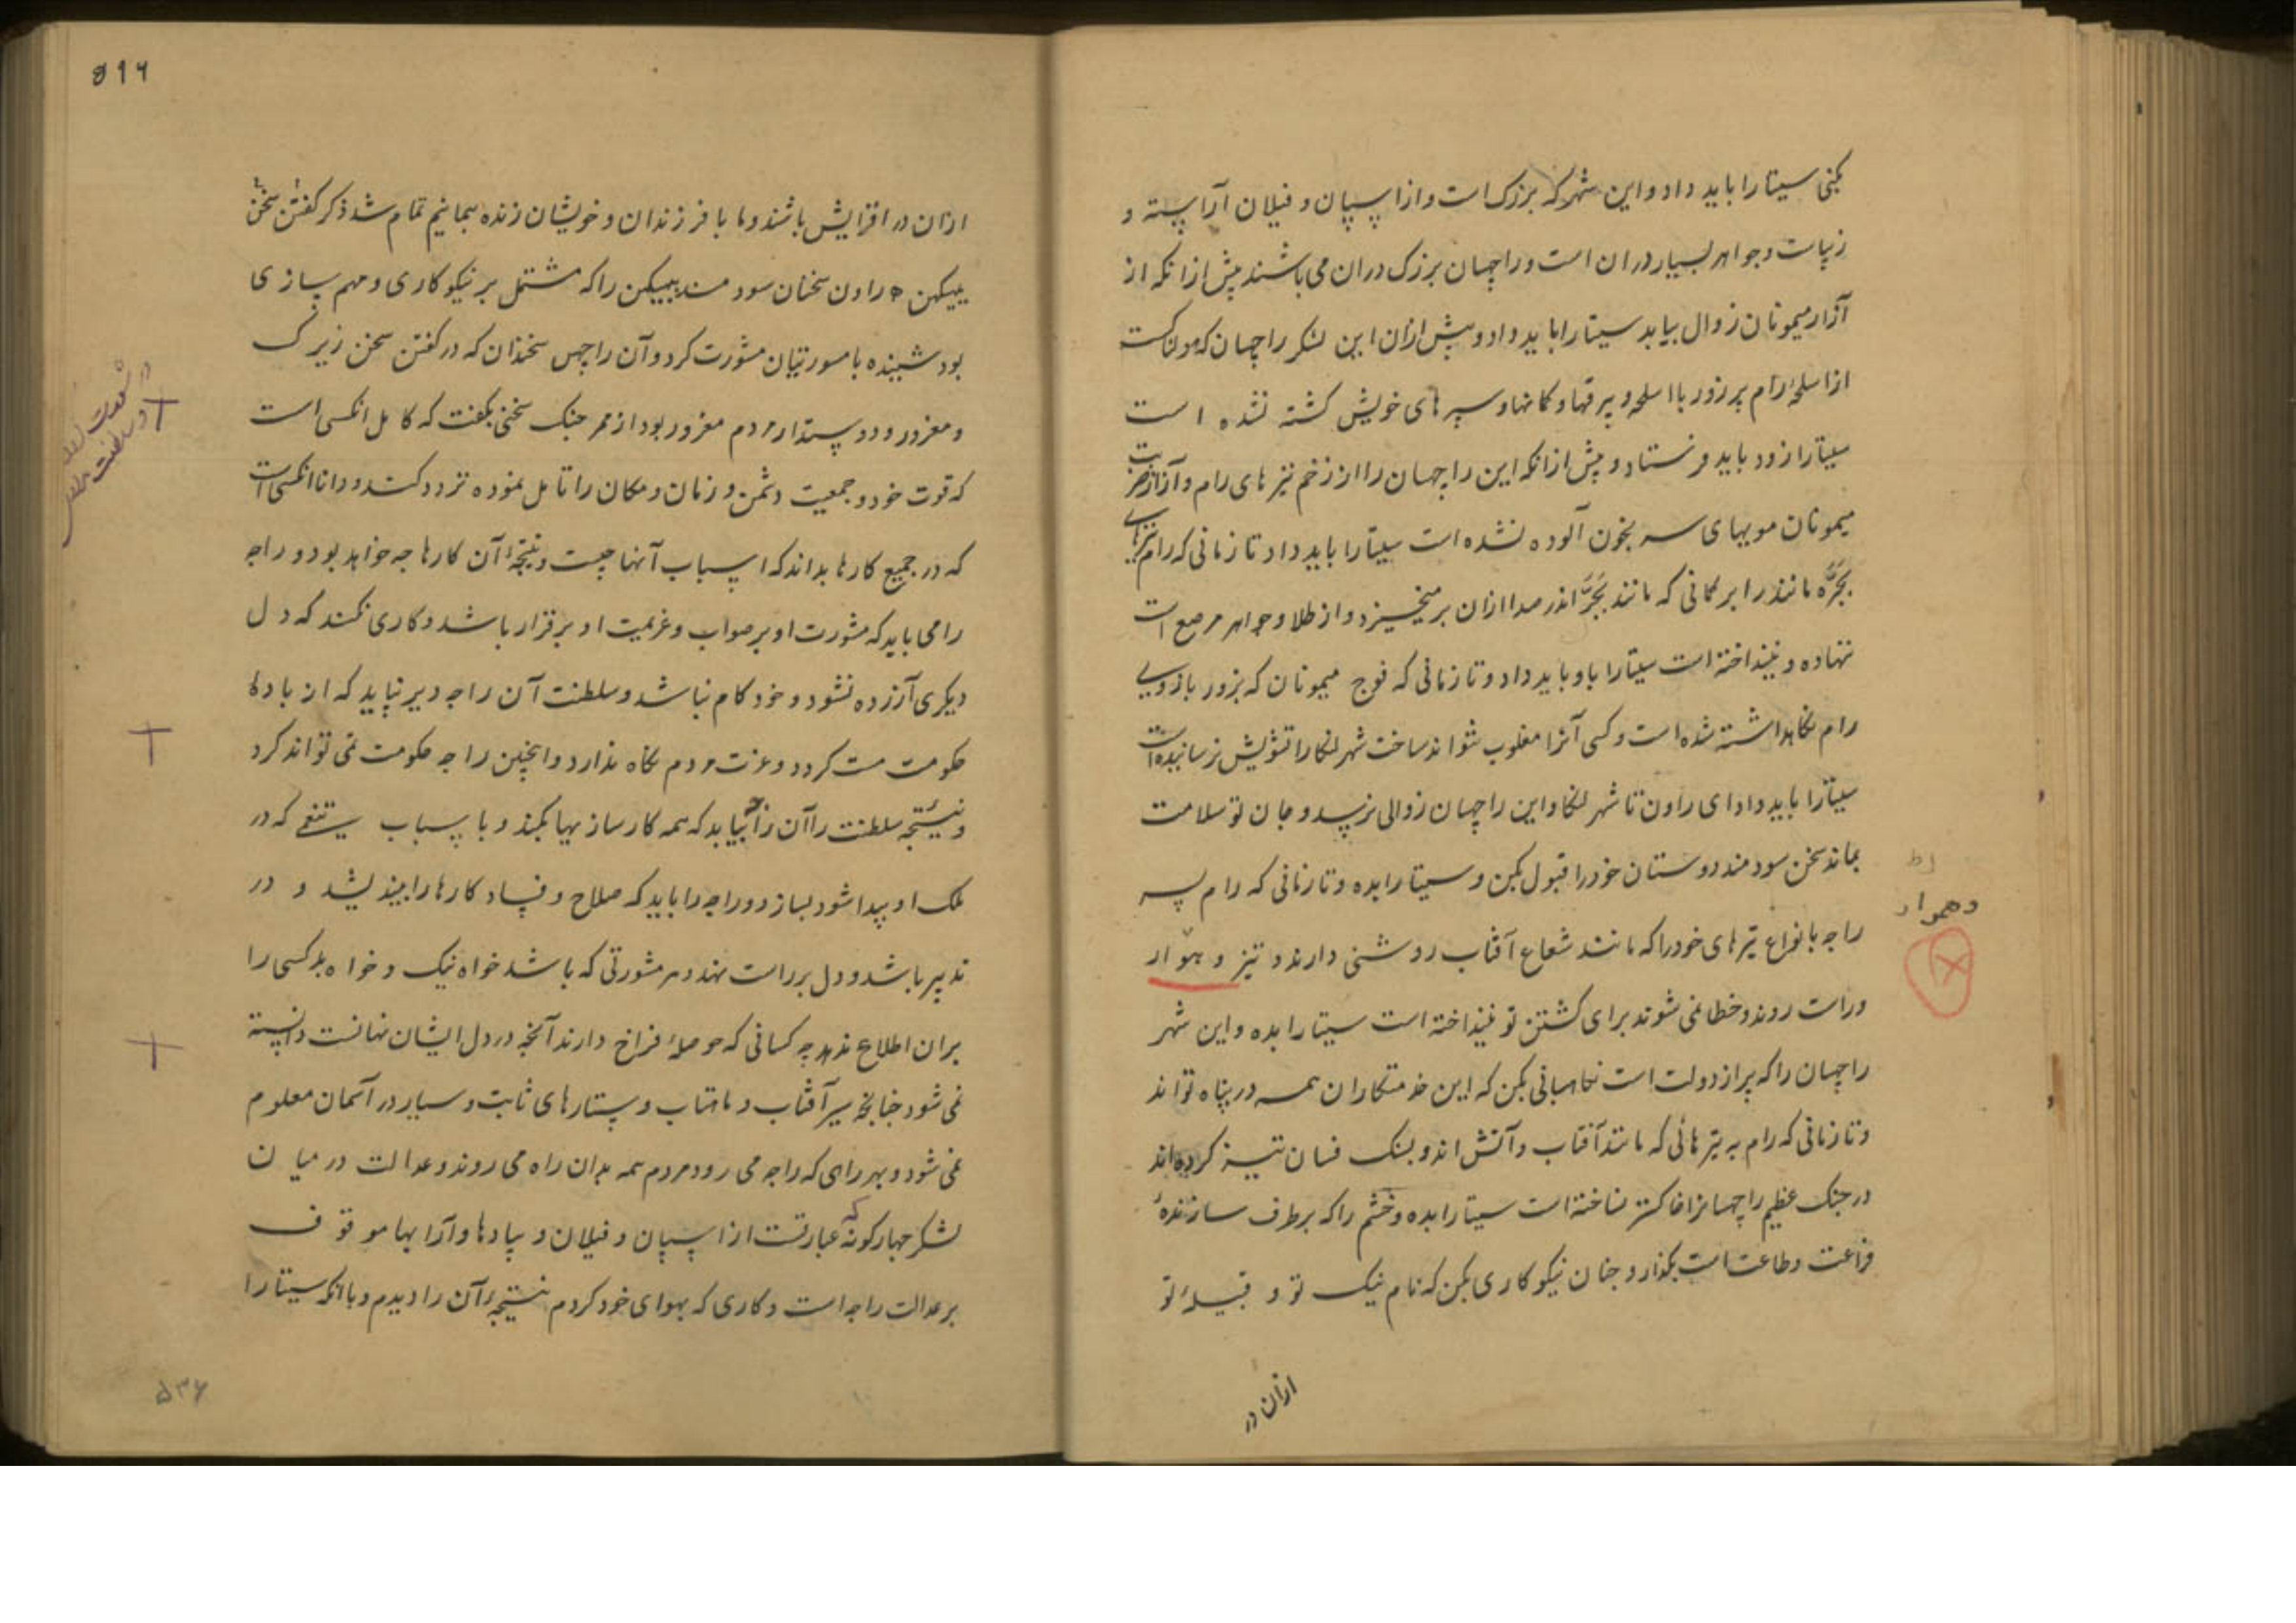 کنی سیتا را باید داد و این شهر که بزرک است و از اسپان و فیلان آراسته و
و جواهر بسیار دران است و راچهسان بزرک دران می باشند پیش ازانکه از
آزار میمونان زوال بیابد سیتا را باید داد و پیش ازان این لشکر راچهسان که هولناکست
از اسلحهٔ رام پر زور با اسلحه و بیرقها و کمانها و سپرهای خویش کشته نشده است
سیتا را زود باید فرستاد و پیش ازانکه این راچهسان را از زخم تیرهای رام و آزار ضرب
میمونان مویهای سر بخون آلوده نشده است سیتا را باید داد تا زمانی که رام تیرهای
بجره مانند را بر کمانی که مانند بجر اندر صدا ازان بر میخیزد و از طلا و جواهر مرصع است
ننهاده و نینداخته است سیتا را باو باید داد و تا زمانی که فوج میمونان که بزور بازوی
رام نکاهداشته شده است و کسی آنرا مغلوب نتواند ساخت شهر لنکا را تشویش نرسانیده است
سیتا را باید داد ای راون تا شهر لنکا و این راچهسان زوالی نرسد و جان تو سلامت
بماند سخن سودمند دوستان خود را قبول بکن و سیتا را بده و تا زمانی که رام پسر
راجه بانواع تیرهای خود را که مانند شعاع آفتاب روشنی دارند و تیز و هموار
و راست روند و خطا نمی شوند برای کشتن تو نینداخته است سیتا را بده و این شهر
راچهسان را که پر از دولت است نکاهبانی بکن که این خدمتکاران همه در پناه تو اند
و تا زمانی که رام به تیرهائی که مانند آفتاب و آتش اند و بسنک فسان تیز کرده اند
در جنک عظیم راچهسانرا خاکستر نساخته است سیتا را بده و خشم را که برطرف سازندهٔ
فراغت و طاعت است بکذار و چنان نیکوکاری بکن که نام نیک تو و قبیلهٔ تو
ازان در
وهموار
۵۱۶
ازان در افزایش باشند و ما با فرزندان و خویشان زنده بمانیم تمام شد ذکر کفتن سخن
ببیکهن راون سخنان سودمند ببیکهن را که مشتمل بر نیکوکاری و مهم سازی
بود شنیده با مشورتیان مشورت کرد و آن راچهس سخندان که در کفتن سخن زیرک
و مغرور و دوستدار مردم مغرور بود از ممر جنک سخنی بکفت که کامل انکسی است
که قوت خود و جمعیت دشمن و زمان و مکان را تامل نموده تردد کند و دانا انکسی است
که در جمیع کارها بداند که اسباب آنها چیست و نتیجهٔ آن کارها چه خواهد بود و راجه
را می باید که مشورت او بر صواب و عزیمت او برقرار باشد و کاری نکند که دل
دیکری آزرده نشود و خود کام نباشد و سلطنت آن راجه دیر نپاید که از بادهٔ
حکومت مست کردد و عزت مردم نکاه ندارد و اینچنین راجه حکومت نمی تواند کرد
و نتیجه سلطنت را آن راجه بیابد که همه کار ساز مهیا بکند و با سباب که در
ملک او پیدا شود بسازد و راجه را باید که صلاح و فساد کارها را بیندیشد و در
تدبیر باشد و دل بر راست نهد و هر مشورتی که باشد خواه نیک و خواه بد کسی را
بران اطلاع ندهد چه کسانی که حوصلهٔ فراخ دارند آنچه در دل ایشان نهانست دانسته
نمی شود چنانچه سیر آفتاب و ماهتاب و ستارهای ثابت و سیار در آسمان معلوم
نمی شود و بهر راهی که راجه می رود مردم همه بدان راه می روند و عدالت در میان
لشکر چهارکونه که عبارتست از اسپان و فیلان و پیادها و آرابها موقوف
بر عدالت راجه است و کاری که بهوای خود کردم نتیجهٔ آن را دیدم و بانکه سیتا را
۵۳۶